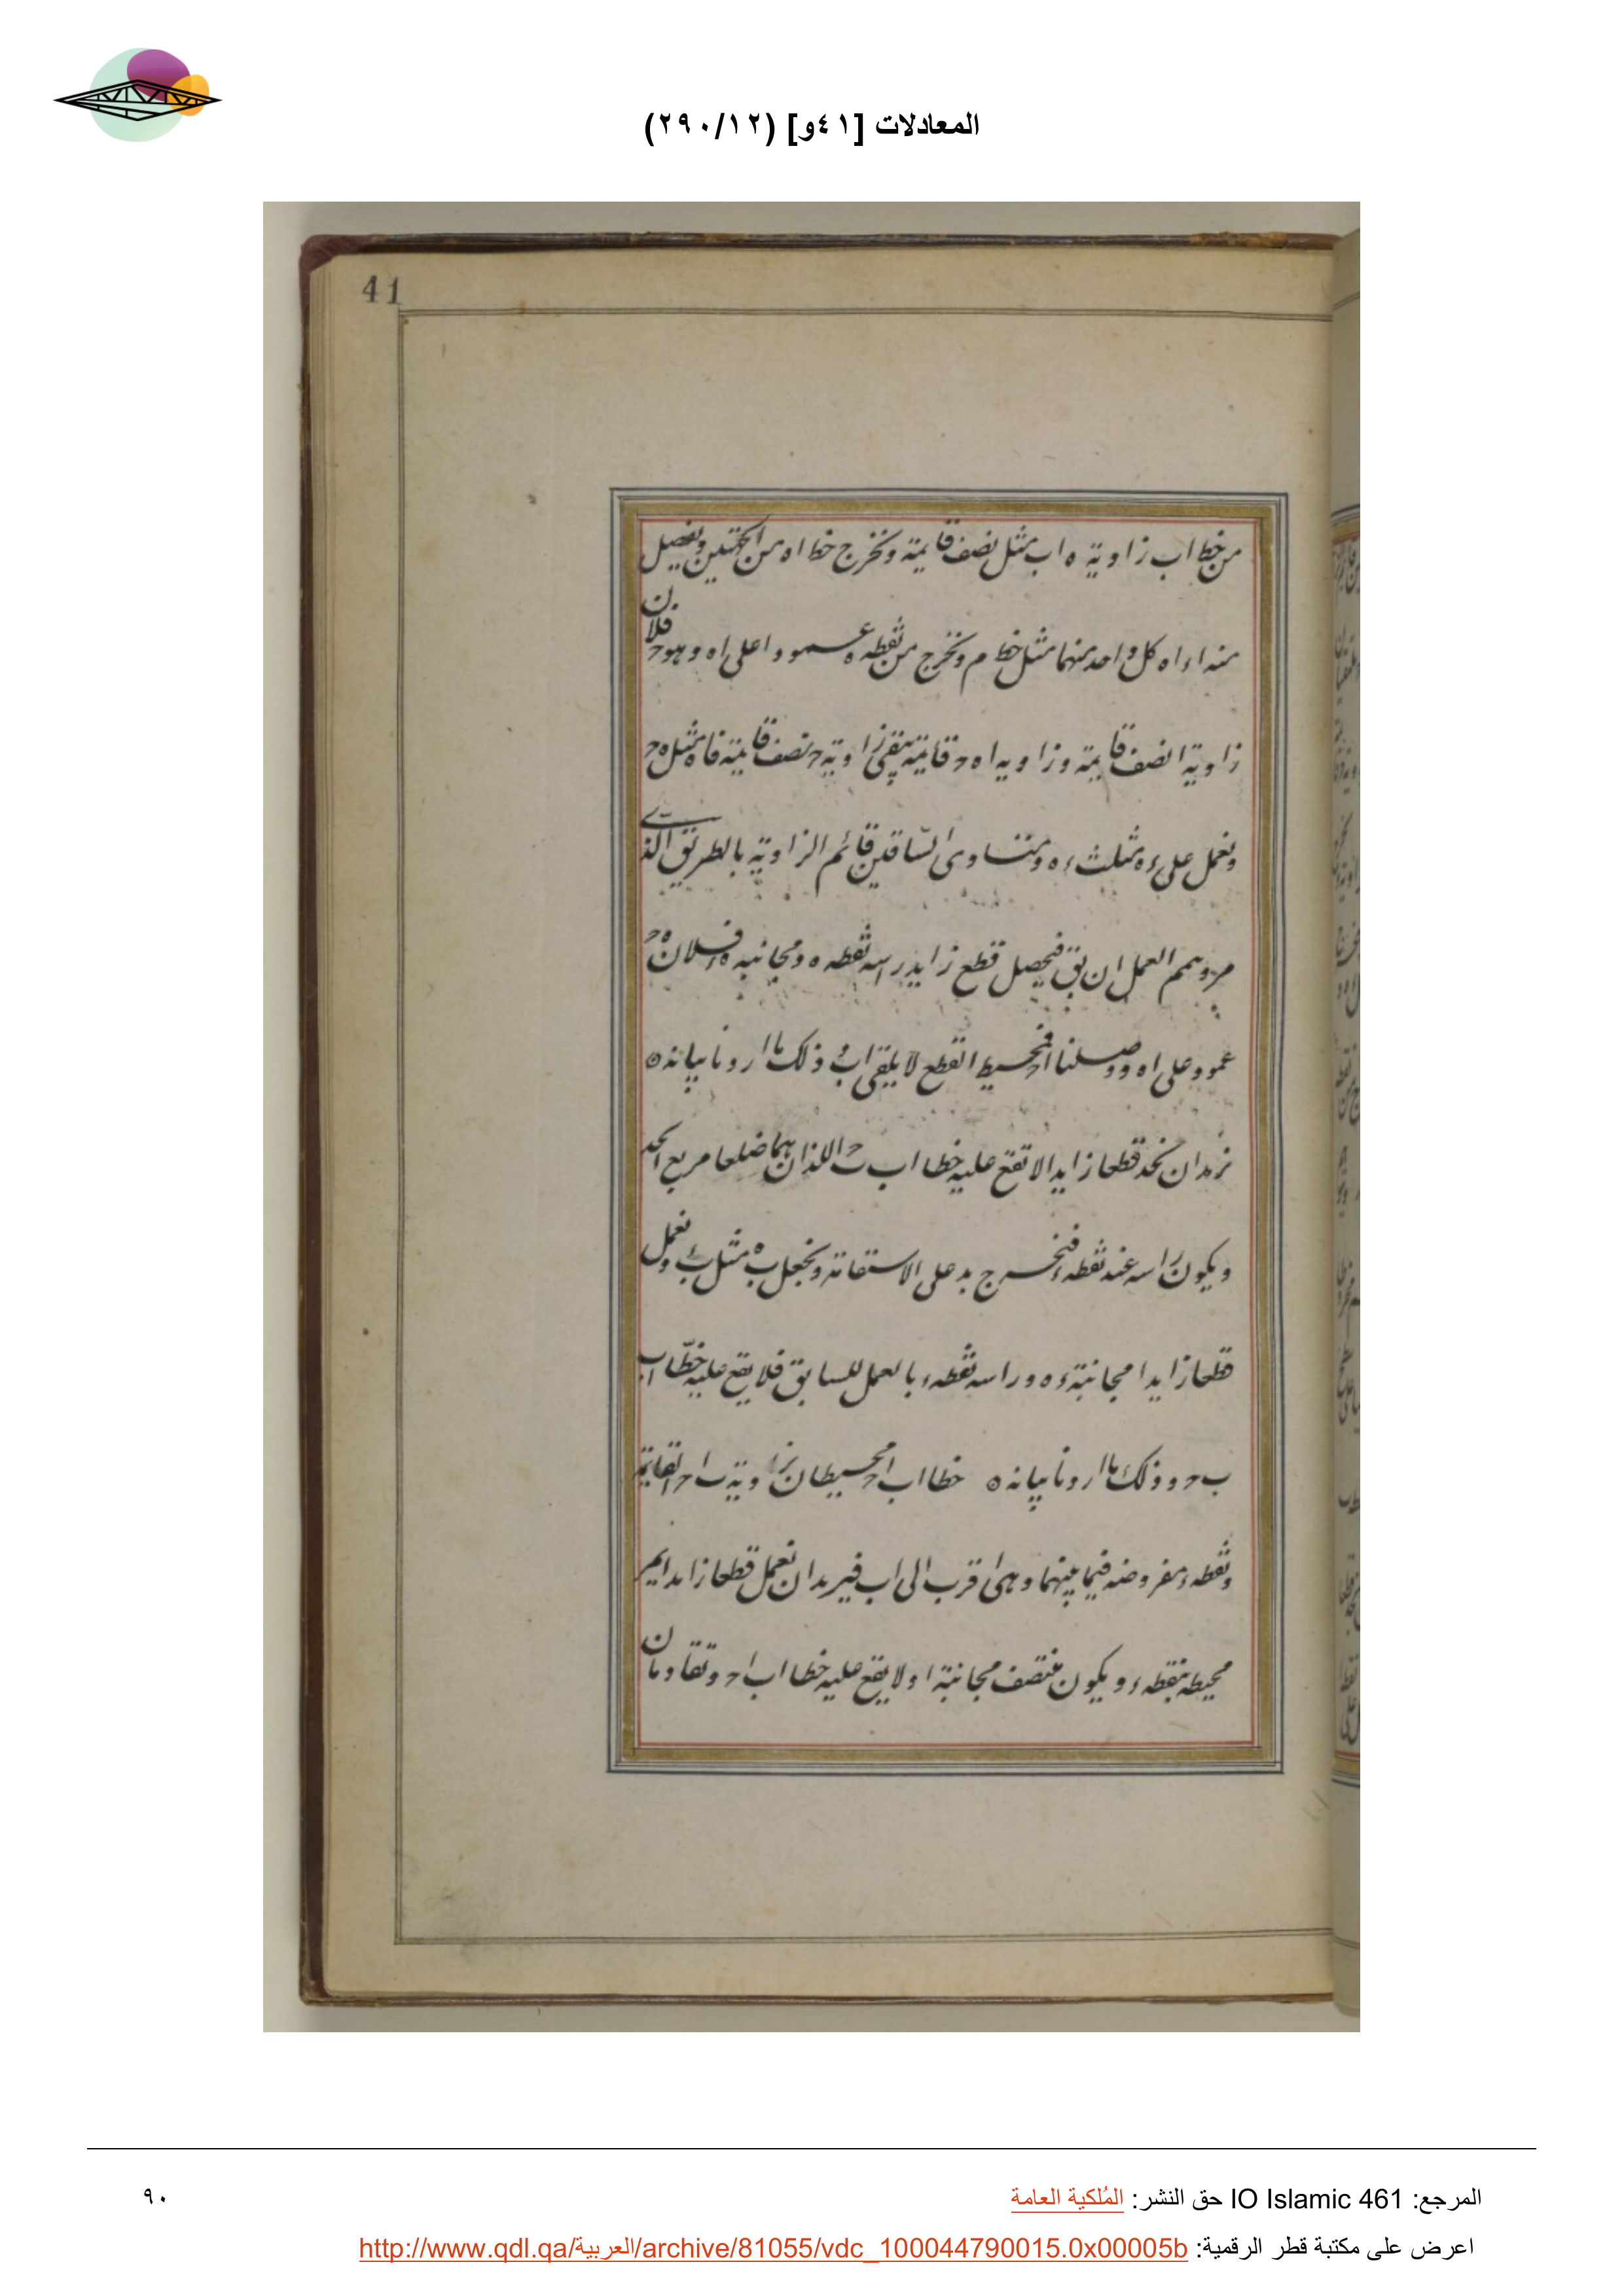 المعادلات [٤١و] (٢٩٠/١٢)
41
من خط اب زاوية ه اب مثل نصف قايمة ونخرج خط اه من الجهتين ونفصل
منه اء اه كل واحد منهما مثل خط م ونخرج من نقطه ه عمودا على اه وهو ه ح فلان
زاوية ا نصف قايمة وزاويه اه ح قايمة يبقى زاوية ح نصف قايمة فاه مثل ه ح
ونعمل على ءه مثلث ءه و متساوى الساقين قائم الزاوية بالطريق الذى
مر ونمم العمل ان بق فيحصل قطع زايد راسه نقطه ه ومجانبه ه ء فلان ه ح
عمود على اه ووصلنا اح فمحيط القطع لا يلقى اب وذلك ما اردنا بيانه ه
نريد ان نحد قطعا زايدا لا تقع عليه خطا اب ب ح اللذان هما ضلعا مربع ا ح
ويكون راسه عند نقطه ء فنخرج بد على الاستقامة ونجعل ب ه مثل ب ء ونعمل
قطعا زايدا مجانبة ءه وراسه نقطه ء بالعمل للسابق فلا يقع عليه خطا اب
ب ح وذلك ما اردنا بيانه ه خطا اب اح محيطان بزاوية ب ا ح القايمة
ونقطه ء مفروضه فيما بينهما وهى اقرب الى اب فنريد ان نعمل قطعا زايدا يمر
محيطه بنقطه ء ويكون منتصف مجانبة ا ولا يقع عليه خطا اب اح وتقاومان
المرجع: IO Islamic 461 حق النشر: المُلكية العامة
٩٠
اعرض على مكتبة قطر الرقمية: http://www.qdl.qa/العربية/archive/81055/vdc_100044790015.0x00005b